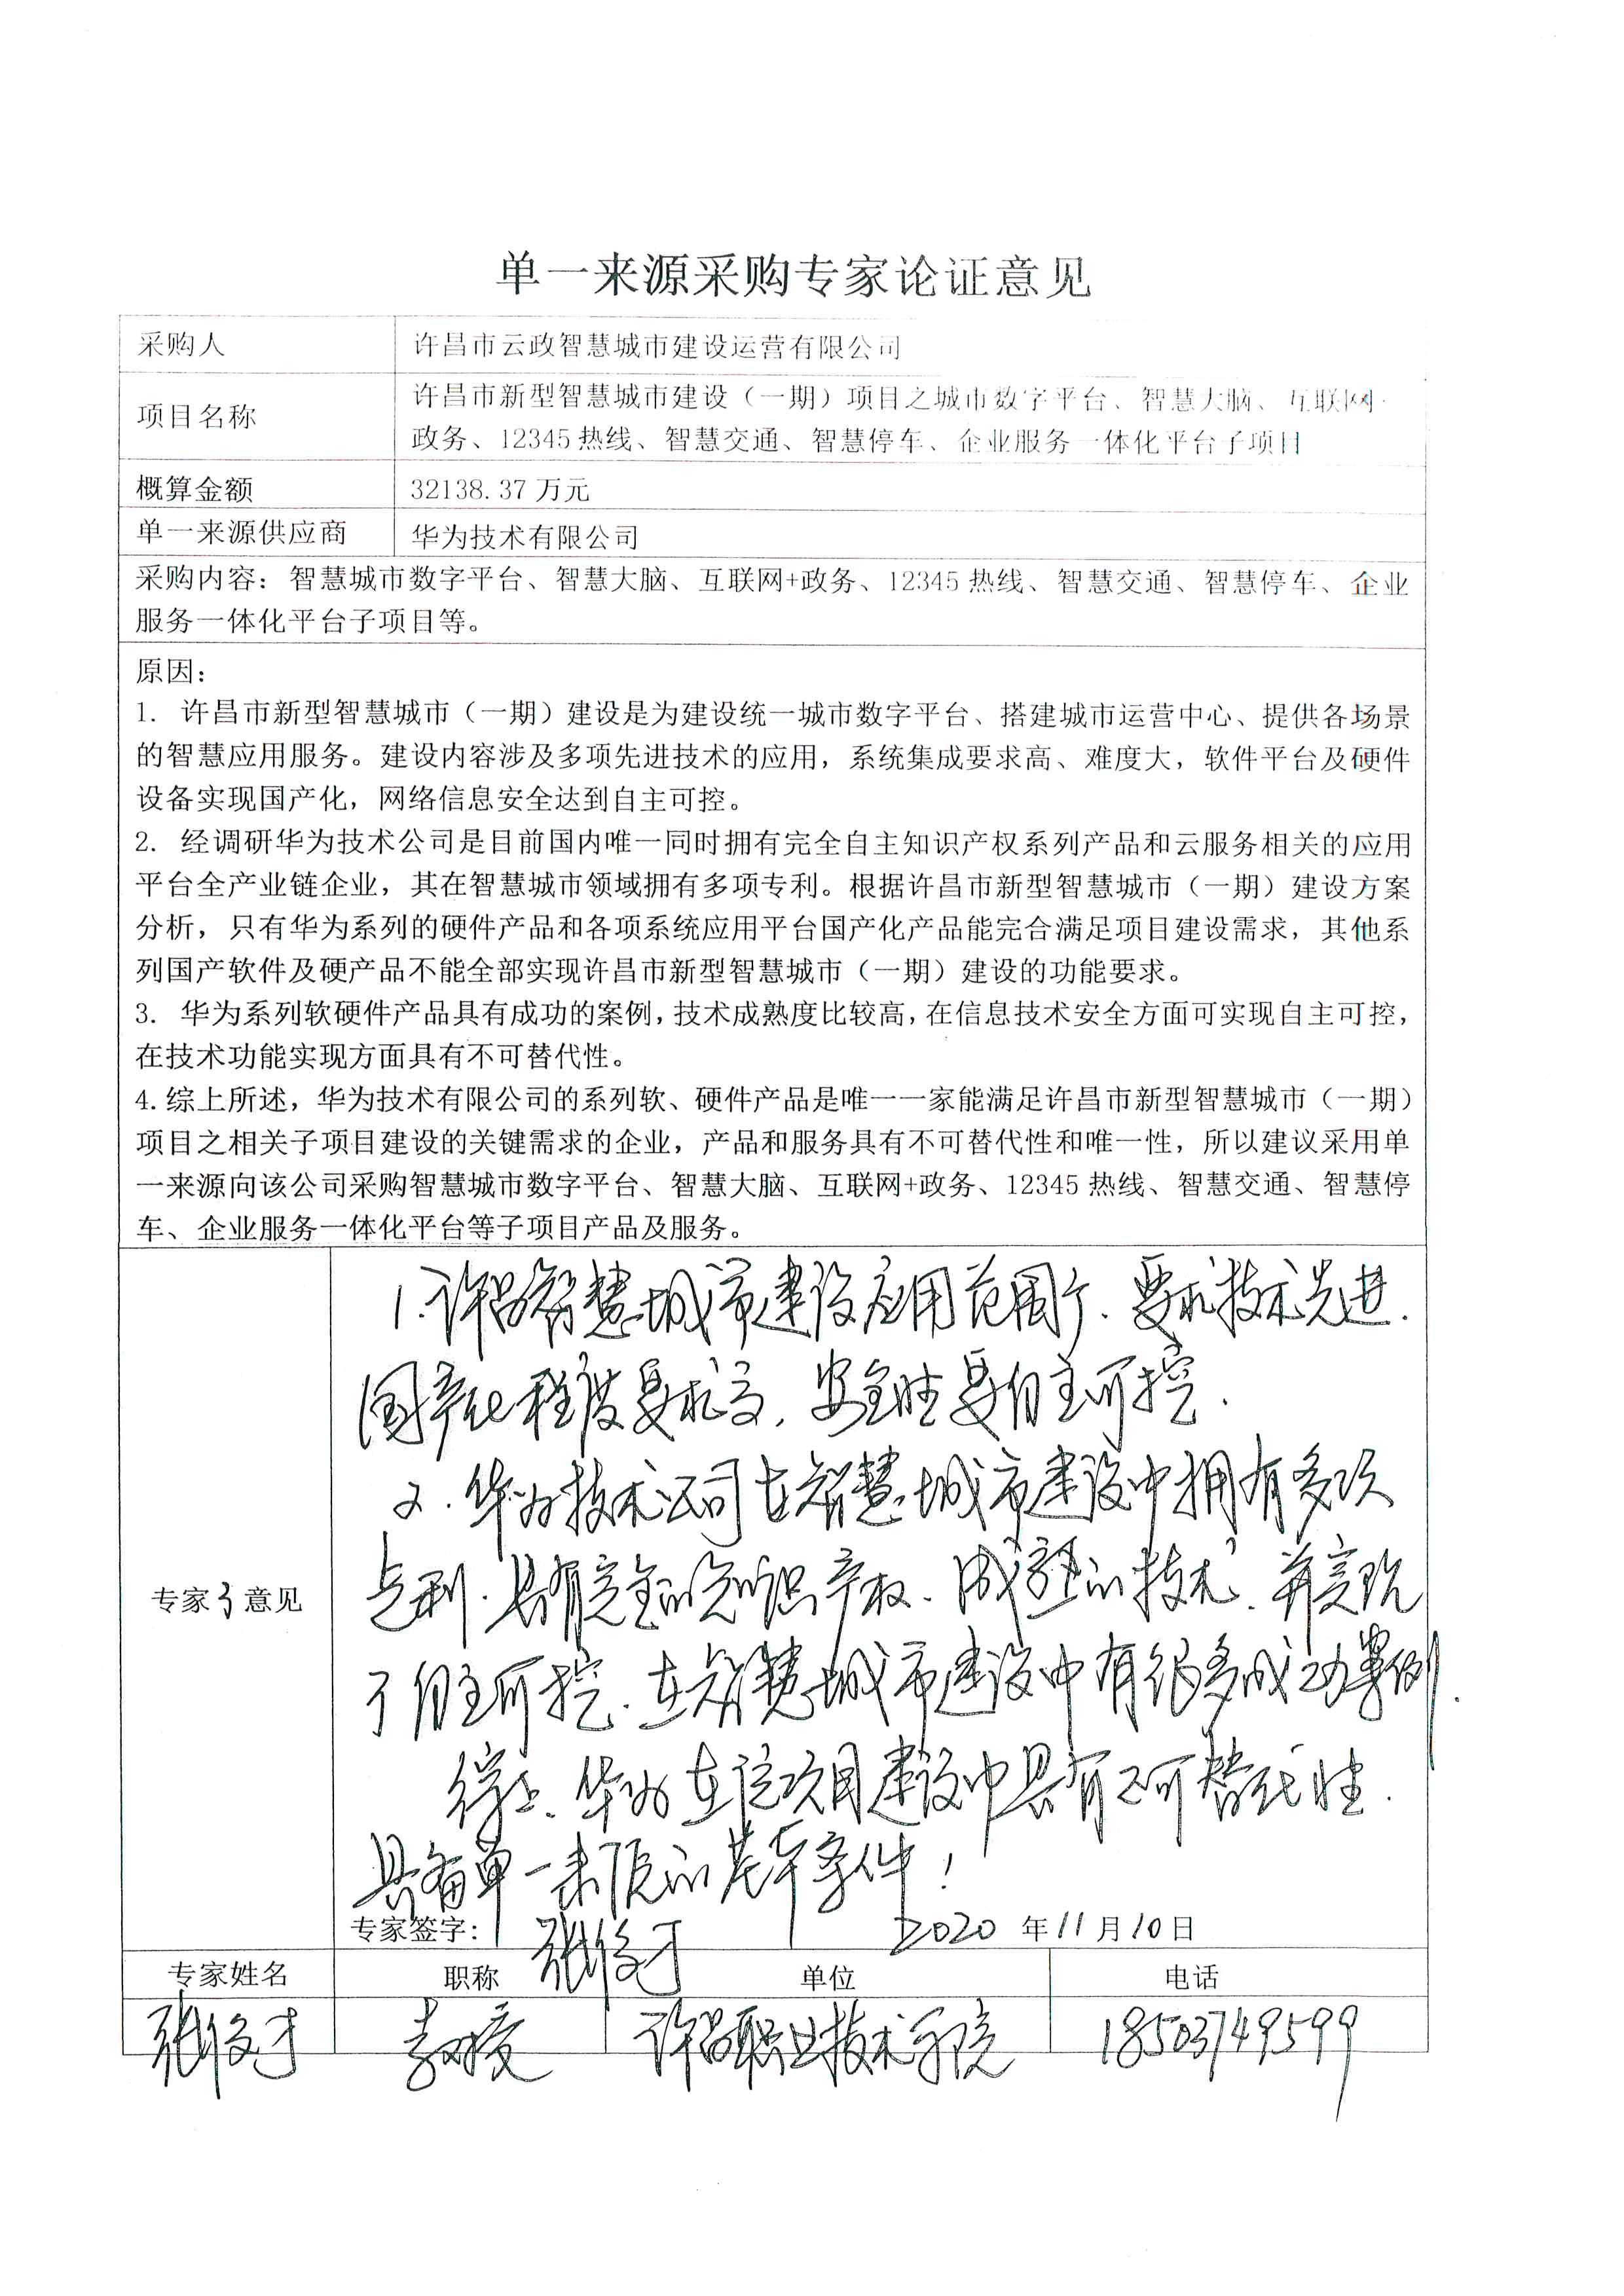 单一来源采购专家论证意见
采购人 许昌市云政智慧城市建设运营有限公司
项目名称 许昌市新型智慧城市建设（一期）项目之城市数字平台、智慧大脑、互联网+
政务、12345热线、智慧交通、智慧停车、企业服务一体化平台子项目
概算金额 32138.37万元
单一来源供应商 华为技术有限公司
采购内容：智慧城市数字平台、智慧大脑、互联网+政务、12345热线、智慧交通、智慧停车、企业
服务一体化平台子项目等。
原因：
1. 许昌市新型智慧城市（一期）建设是为建设统一城市数字平台、搭建城市运营中心、提供各场景
的智慧应用服务。建设内容涉及多项先进技术的应用，系统集成要求高、难度大，软件平台及硬件
设备实现国产化，网络信息安全达到自主可控。
2. 经调研华为技术公司是目前国内唯一同时拥有完全自主知识产权系列产品和云服务相关的应用
平台全产业链企业，其在智慧城市领域拥有多项专利。根据许昌市新型智慧城市（一期）建设方案
分析，只有华为系列的硬件产品和各项系统应用平台国产化产品能完合满足项目建设需求，其他系
列国产软件及硬产品不能全部实现许昌市新型智慧城市（一期）建设的功能要求。
3. 华为系列软硬件产品具有成功的案例，技术成熟度比较高，在信息技术安全方面可实现自主可控，
在技术功能实现方面具有不可替代性。
4.综上所述，华为技术有限公司的系列软、硬件产品是唯一一家能满足许昌市新型智慧城市（一期）
项目之相关子项目建设的关键需求的企业，产品和服务具有不可替代性和唯一性，所以建议采用单
一来源向该公司采购智慧城市数字平台、智慧大脑、互联网+政务、12345热线、智慧交通、智慧停
车、企业服务一体化平台等子项目产品及服务。
1.许昌智慧城市建设应用范围广.要求技术先进.
国产化程度要求高,安全性要自主可控.
2.华为技术公司在智慧城市建设中拥有多项
专家3意见
专利.具有完全的知识产权、成熟的技术、并实现
了自主可控.在智慧城市建设中有很多成功案例.
综上、华为在该项目建设中具有不可替代性.
具备单一来源的基本条件!
专家签字: 张俊才 2020年11月10日
专家姓名 职称 单位 电话
张俊才 教授 许昌职业技术学院 18503749599